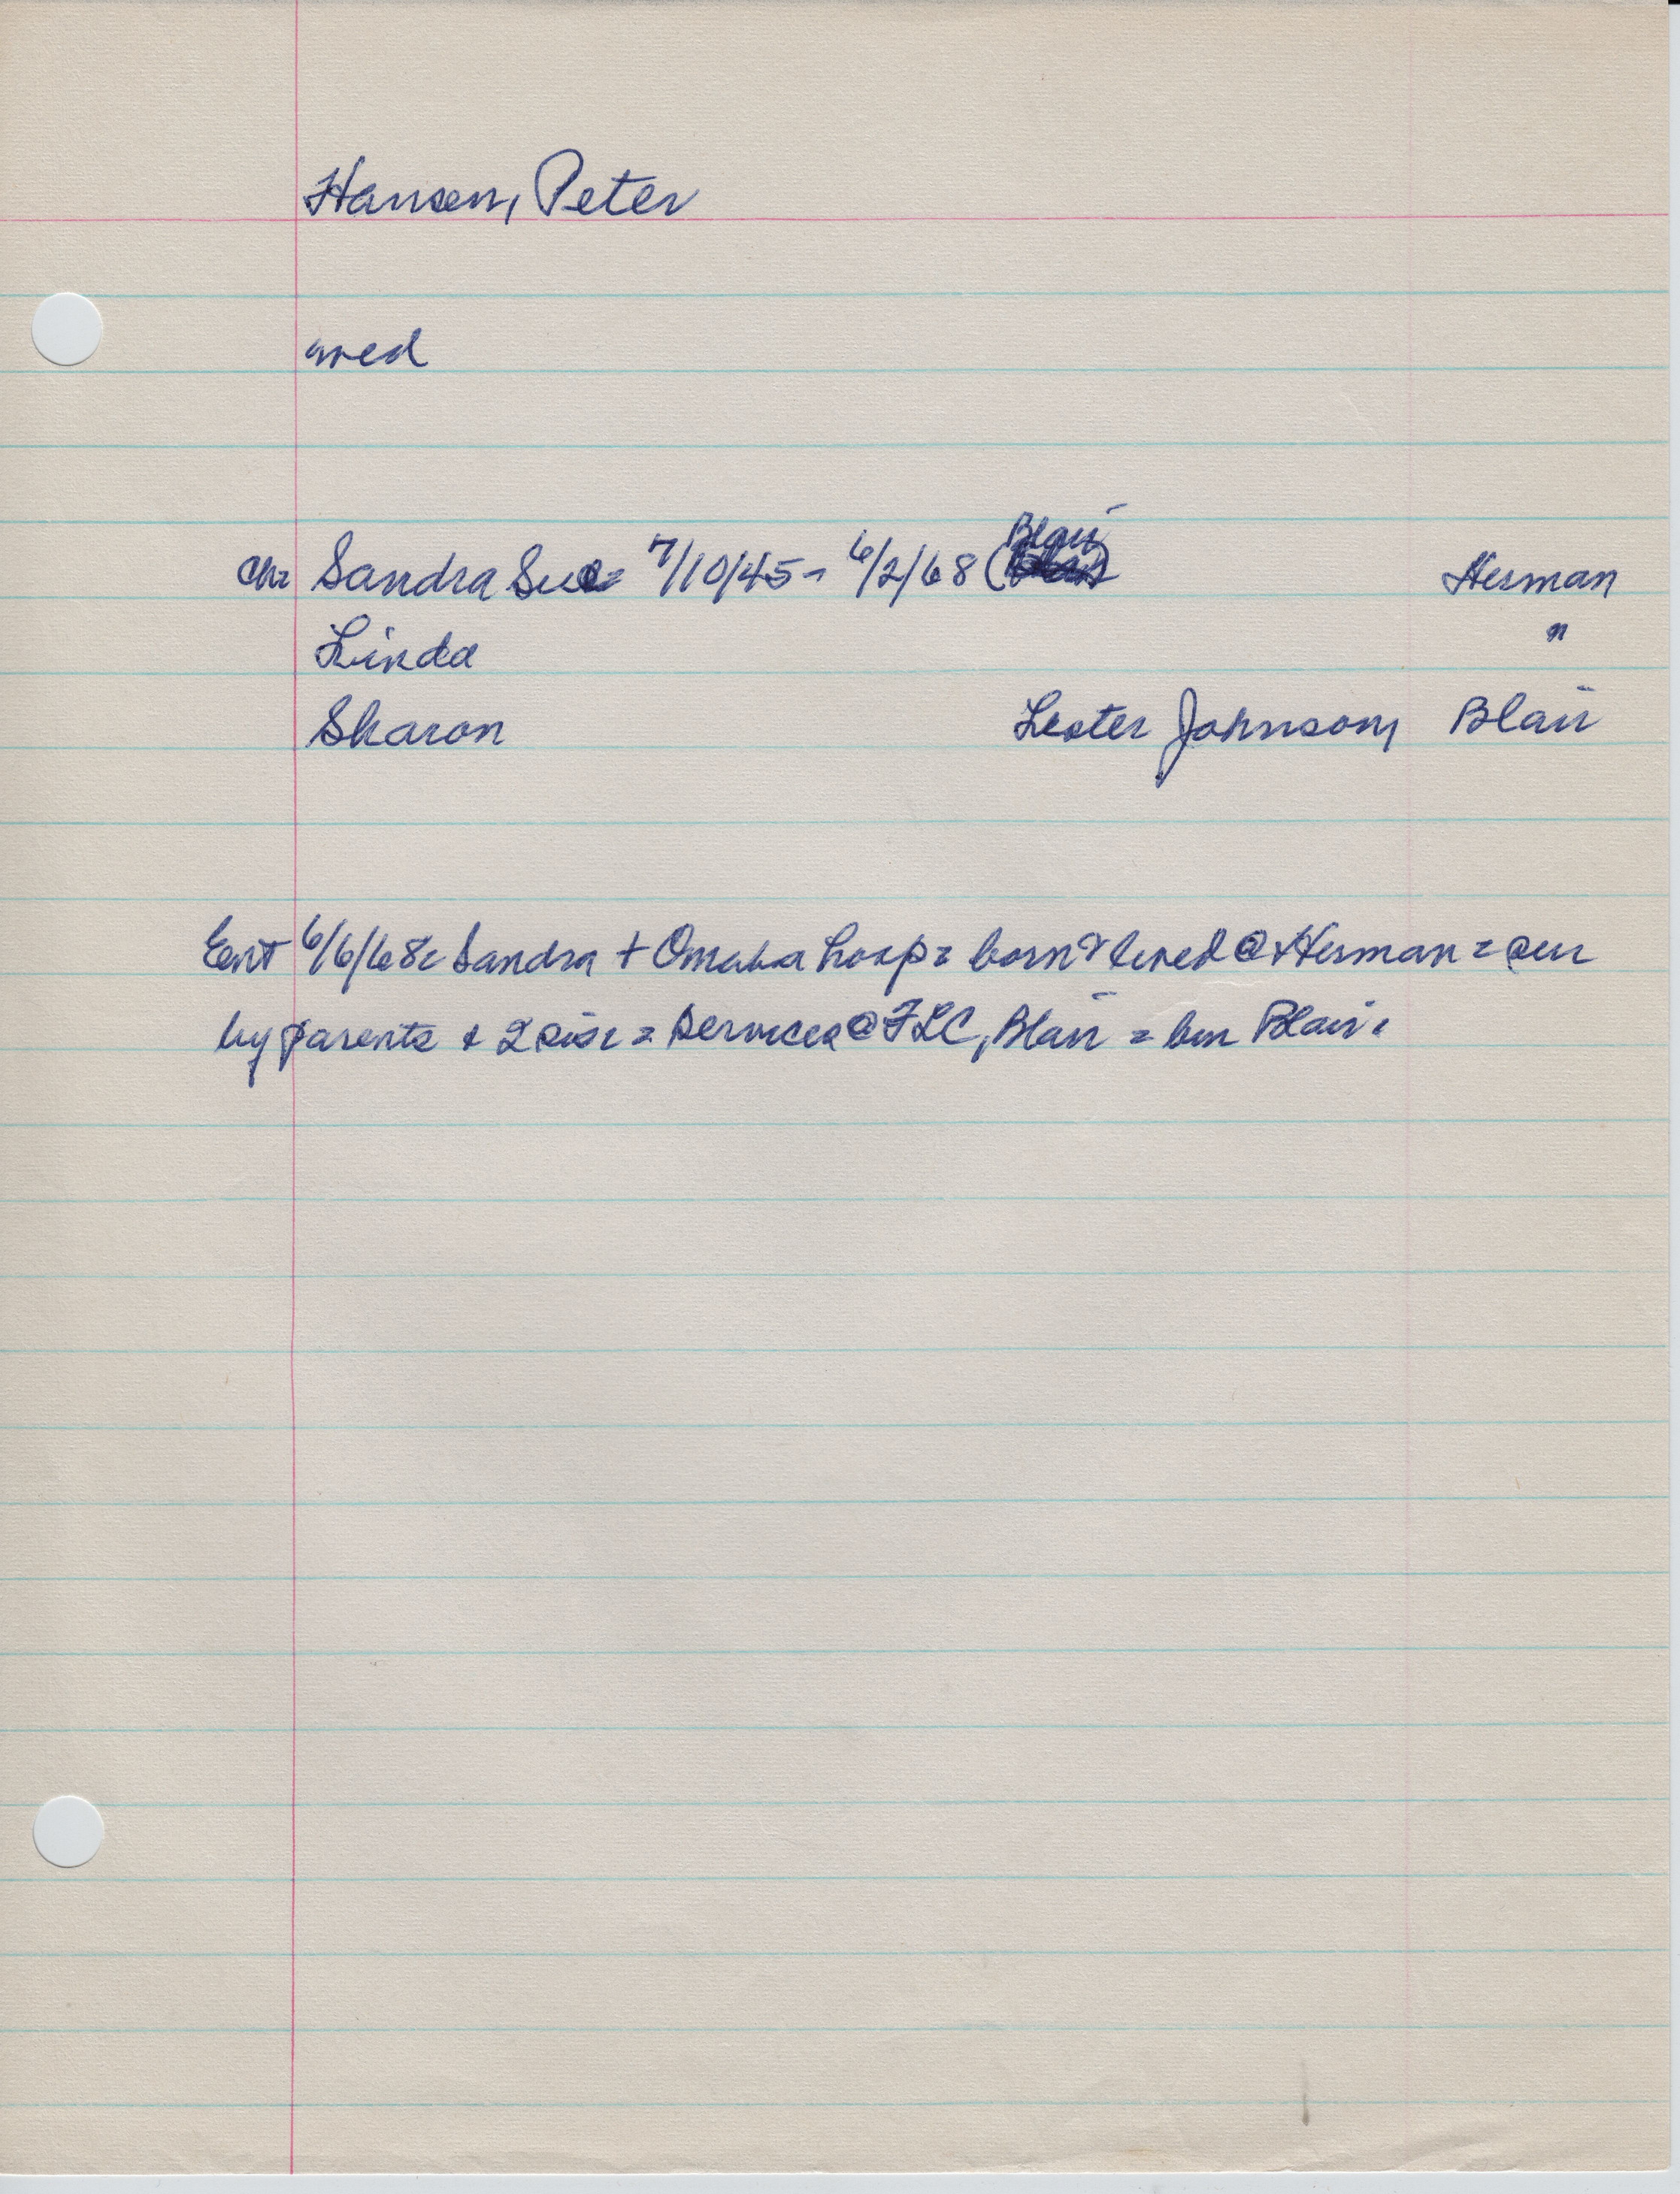 Hansen, Peter
med
Ch: Sandra Sue = 7/10/45 - 6/2/68 (Blair
Herman
Linda "
Sharon Lester Johnson, Blair
Ent 6/6/68: Sandra + Omaha hosp = born & lived @ Herman = sur
by parents & 2 sis: = Services @ FLC, Blair = bur Blair.